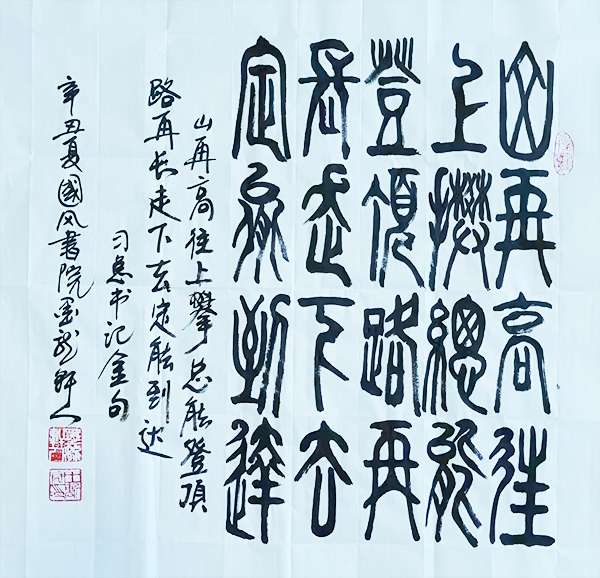 山再高往
上攀總能
登頂路再
長走下去
定能到達
山再高往上攀总能登顶
路再长走下去定能到达
习总书记金句
辛丑夏國风書院墨龙轩人